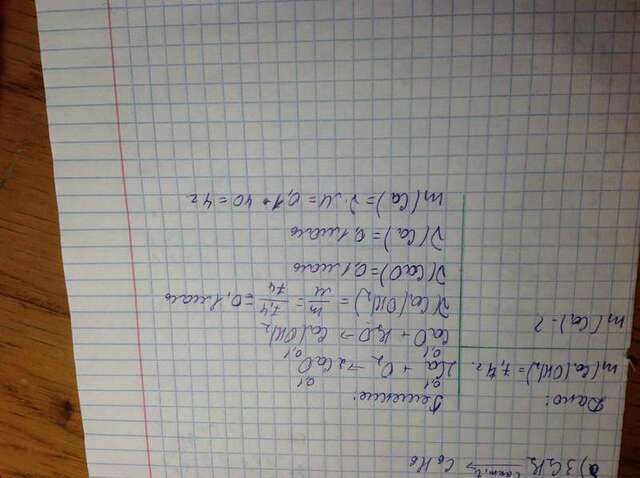 б) 3C₂H₂ C акт, t → C₆H₆
Дано:
m(Ca(OH)₂) = 7,4 г.
m(Ca) - ?
Решение:
0,1 0,1
2Ca + O₂ → 2CaO
0,1 0,1
CaO + H₂O → Ca(OH)₂
ν(Ca(OH)₂) = m/M = 7,4/74 = 0,1 моль
ν(CaO) = 0,1 моль
ν(Ca) = 0,1 моль
m(Ca) = ν · M = 0,1 · 40 = 4 г.